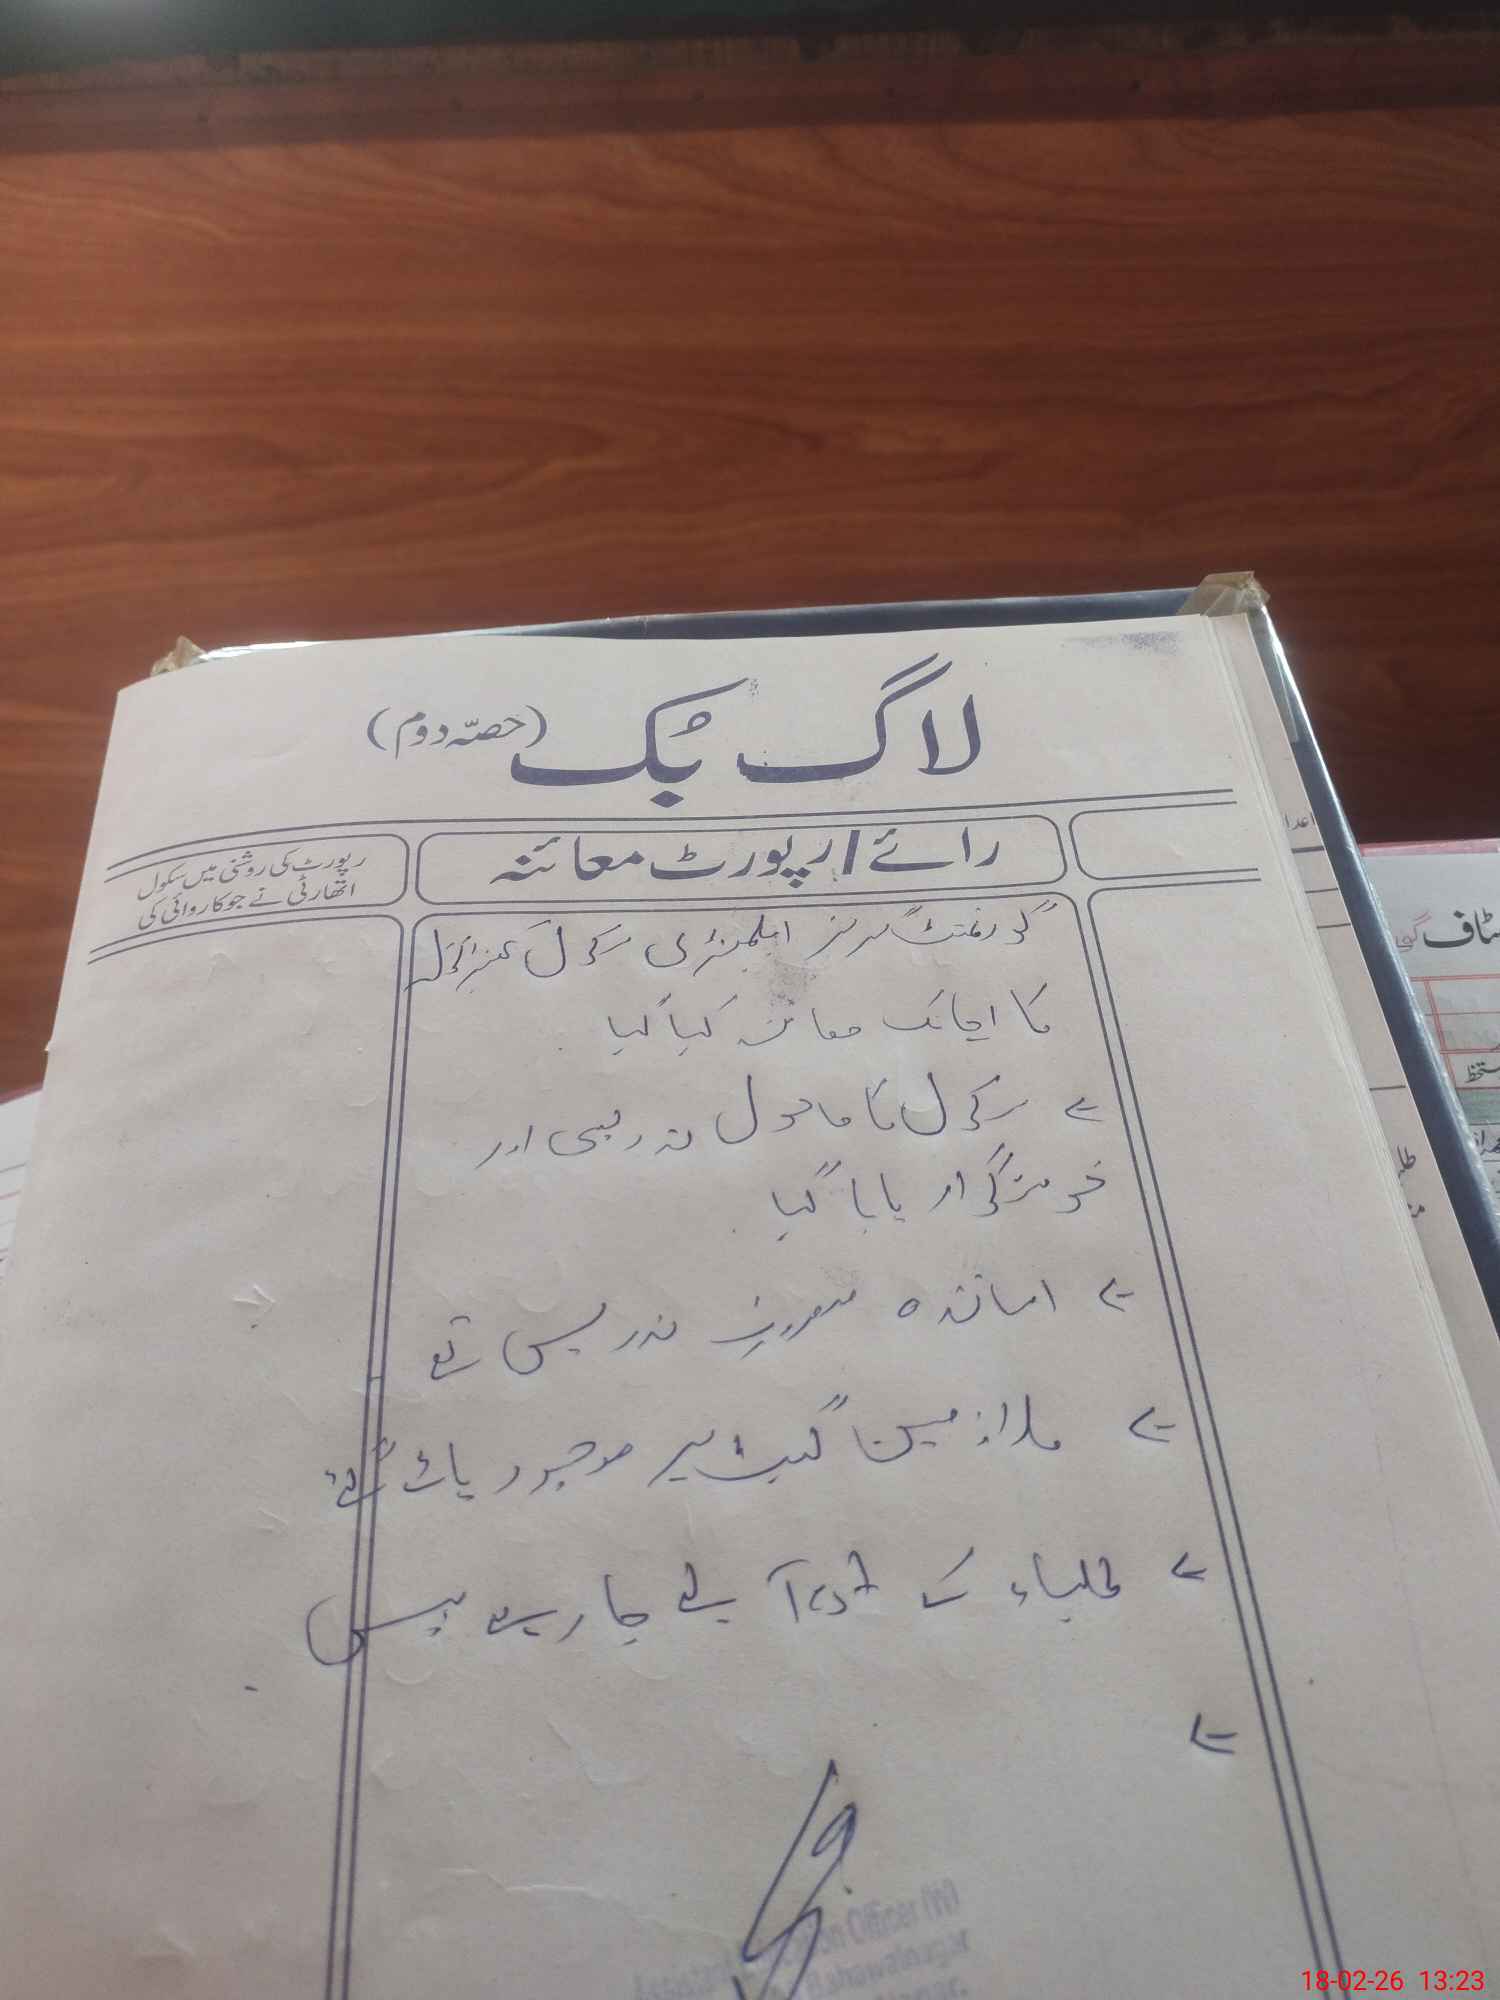 لاگ بُک (حصّہ دوم)
رائے / رپورٹ معائنہ
رپورٹ کی روشنی میں سکول
اتھارٹی نے جو کاروائی کی
گورنمنٹ گرلز ایلیمنٹری سکول
کا اچانک معائنہ کیا گیا
سکول کا ماحول تدریسی اور
خوشگوار پایا گیا
اساتذہ مصروف تدریس تھے
ملازمین گیٹ پر موجود پائے گئے
طلباء کے Test لیے جا رہے ہیں
ٹاف
18-02-26 13:23